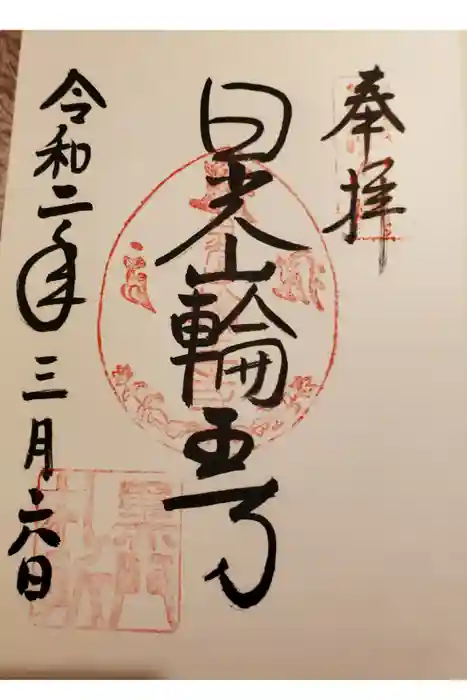 奉拝
日光山輪王寺
令和二年三月六日
黒門
札所